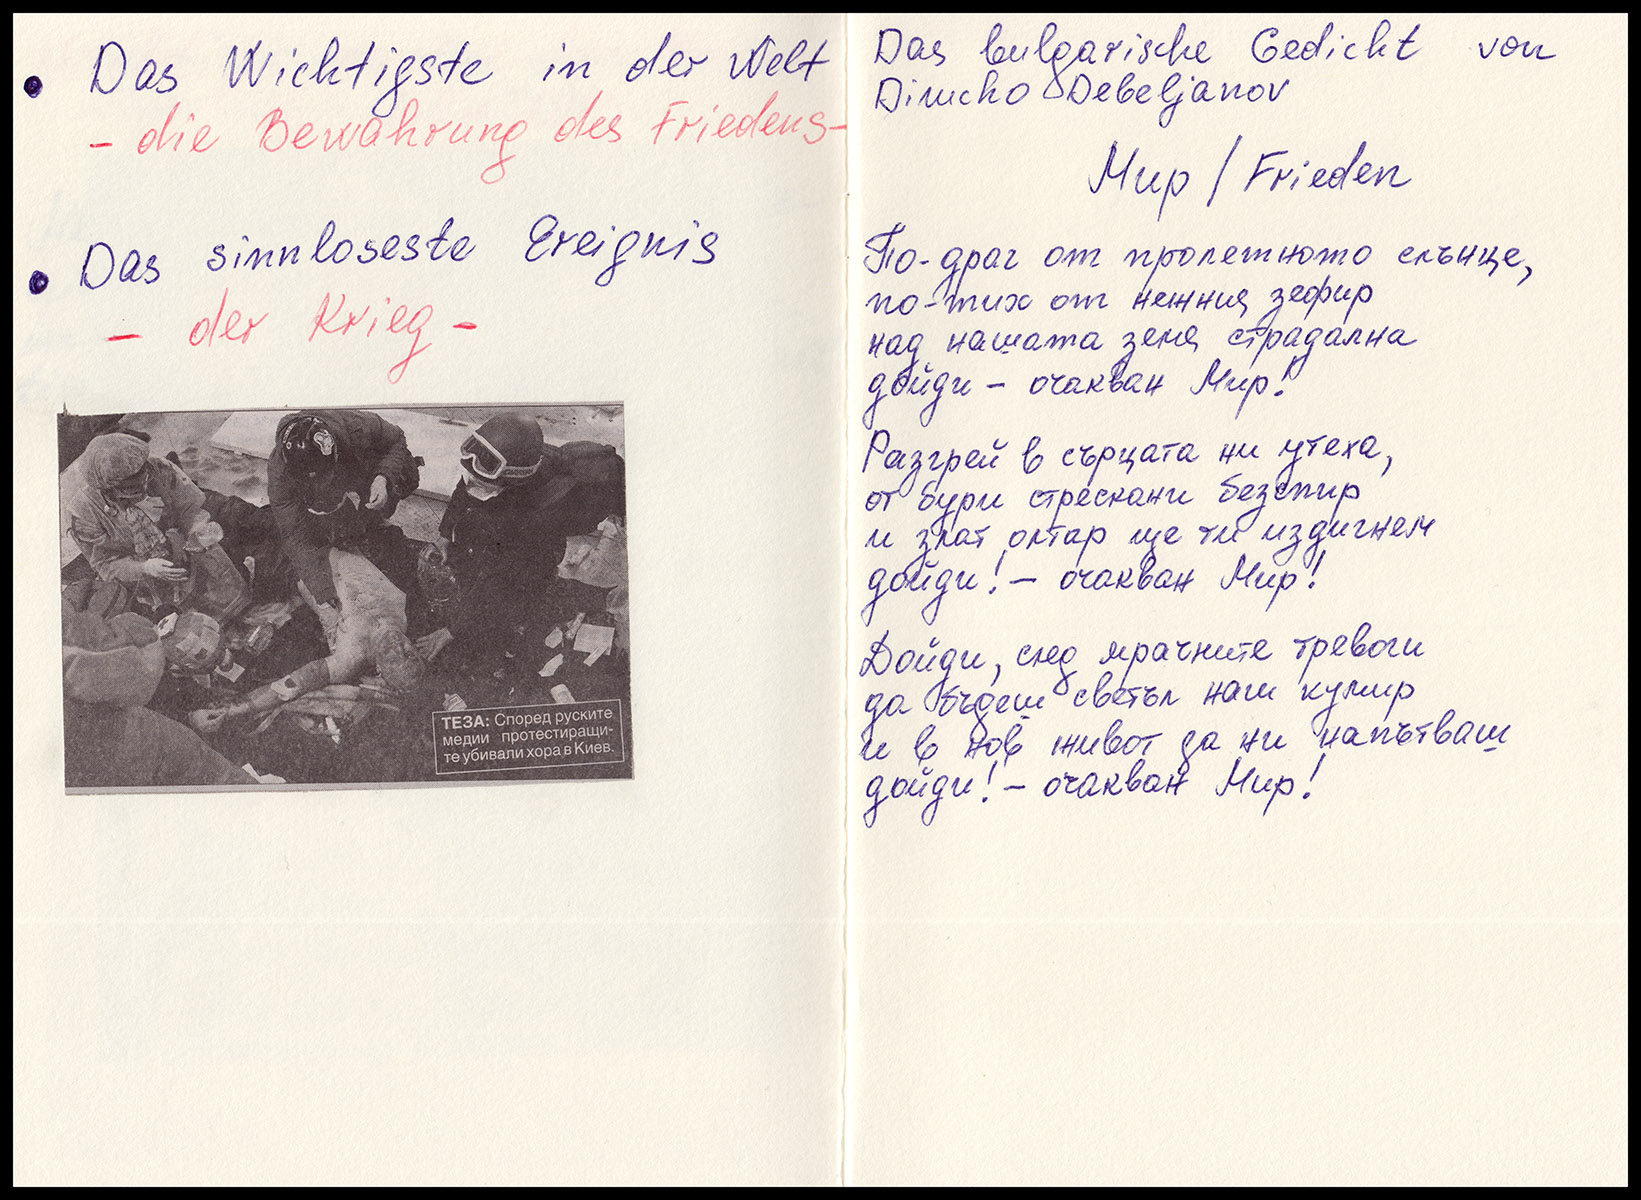 • Das Wichtigste in der Welt
- die Bewahrung des Friedens -
• Das sinnloseste Ereignis
- der Krieg -
ТЕЗА: Според руските
медии протестиращи-
те убивали хора в Киев.
Das bulgarische Gedicht von
Dimcho Debeljanov
Мир / Frieden
По-драг от пролетното слънце,
по-тих от нежния зефир
над нашата земя страдална
дойди - очакван Мир!
Разгрей в сърцата ни утеха,
от бури стрескани безспир
и злат олтар ще ти издигнем
дойди! - очакван Мир!
Дойди, след мрачните тревоги
да бъдеш светъл наш кумир
и в нов живот да ни напътваш
дойди! - очакван Мир!